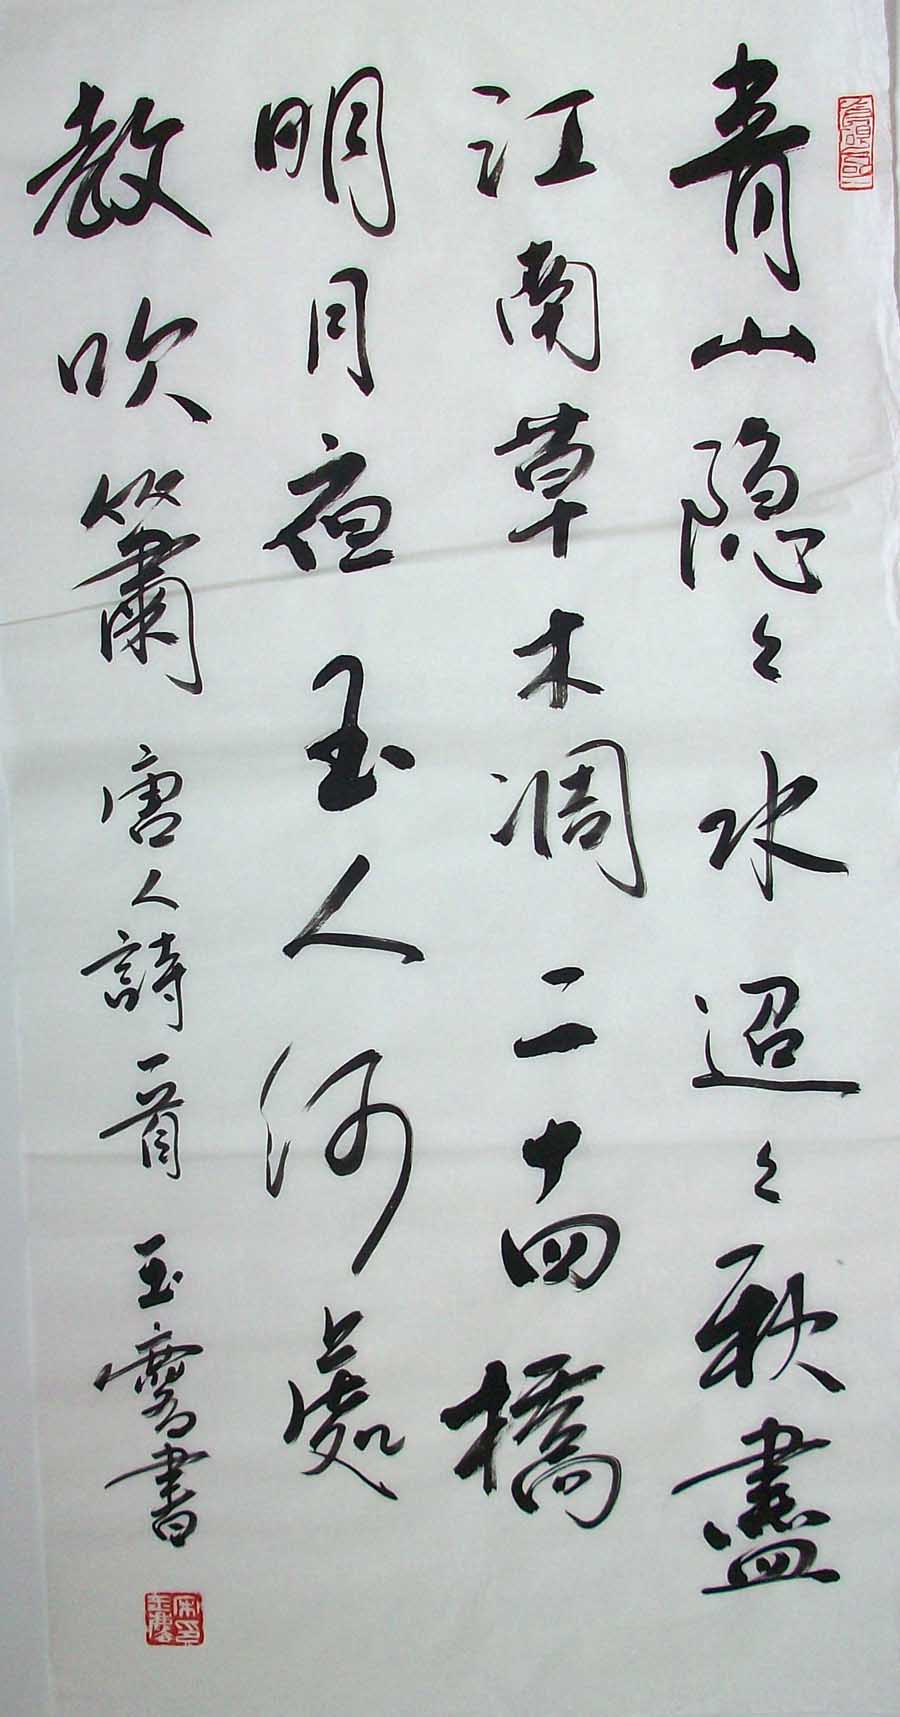 青山隐々水迢々秋盡
江南草木凋二十四橋
明月夜玉人何處
教吹簫 唐人詩一首 玉麐書